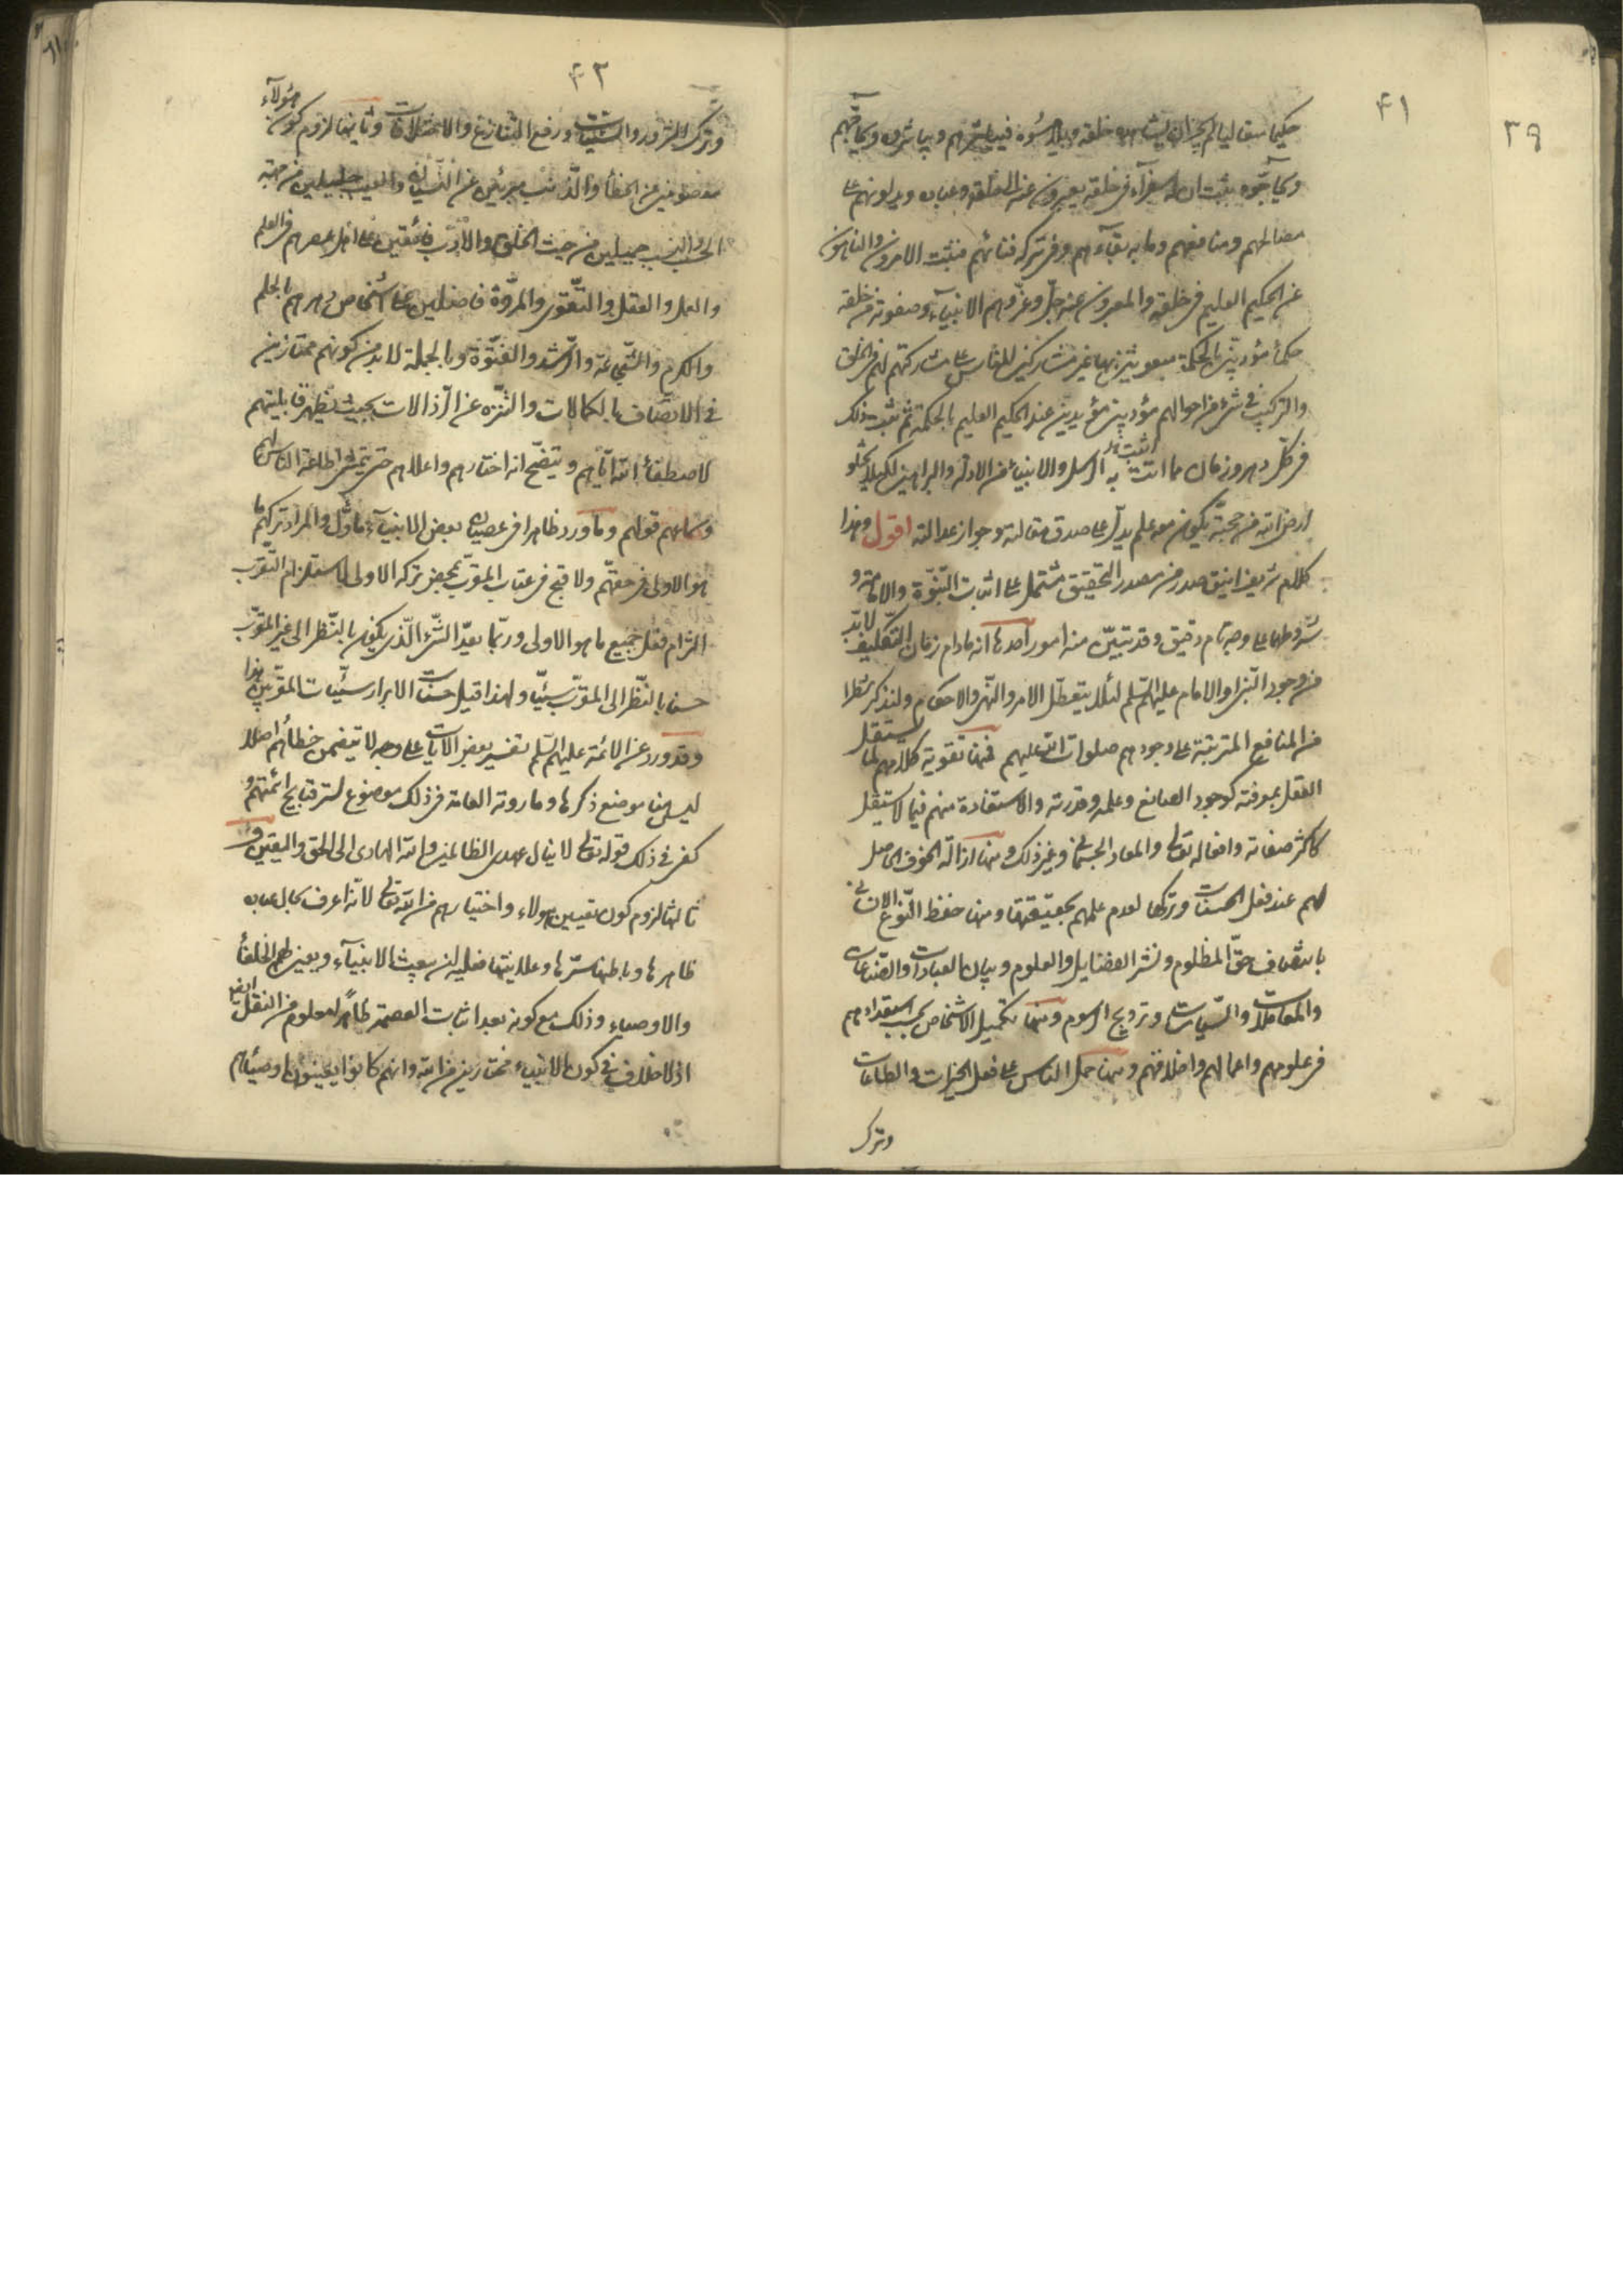 ٣٩
۴١
حكيما متعاليا لم يجز ان يشاهده خلقه ويلامسوه فيباشرهم ويباشروه ويحاجّهم
ويحاجّوه ثبت ان له سفرآء فى خلقه يعبرون عنه الى خلقه وعباده ويدلونهم على
مصالحهم ومنافعهم وما به بقاءهم وفى تركه فنائهم فثبت الامرون والناهون
عن الحكيم العليم فى خلقه والمعبرون عنه جلّ وعزّ وهم الانبيآء وصفوته من خلقه
حكمآء مؤدبين بالحكمة مبعوثين بها غير مشاركين للناس على مشاركتهم لهم فى الخلق
والتركيب فى شئ من احوالهم مؤيدين عند الحكيم العليم بالحكمة ثم ثبت ذلك
فى كلّ دهر وزمان مما اتت به الرسل والانبيآء من الادلة والبراهين لكيلا يخلو
ارض الله من حجّة يكون معه علم يدلّ على صدق مقالته وجواز عدالته اقول وهذا
كلام شريف انيق صدر من مصدر التحقيق مشتمل على اثبات النّبوّة والامامة و
شروطهما على وجه تام دقيق وقد تبيّن منه امور احدها انه مادام زمان التكليف لابدّ
من وجود النّبى او الامام عليهم السّلم لئلا يتعطّل الامر والنّهى والاحكام ولنذكر شطرا
من المنافع المترتبة على وجودهم صلوات الله عليهم فمنها تقوية كلامهم لما يستقل
العقل بمعرفته كوجود الصانع وعلمه وقدرته والاستفادة منهم فيما لا يستقل
كاكثر صفاته وافعاله تعالى والمعاد الجسمانى وغير ذلك ومنها ازالة الخوف الحاصل
لهم عند فعل الحسنات وتركها لعدم علمهم بحقيقتها ومنها حفظ النّوع الانسانى
بانتصاف حقّ المظلوم ونشر الفضايل والعلوم وبيان العبادات والصّناعات
والمعاملات والسّياسات وترويج الرسوم ومنها تكميل الاشخاص بحسب استعدادهم
فى علومهم واعمالهم واخلاقهم ومنها حمل الناس على فعل الخيرات والطاعات
وترك
۴٢
وترك الشرور والسّيئات ورفع التنازع والاختلافات وثانيها لزوم كون هؤلآء
معصومين من الخطأ والذّنب مبرئين عن النسيان والعيب جليلين من جهة
الحسب والنسب جميلين من حيث الخلق والادب فائقين على اهل عصرهم فى العلم
والعمل والعقل والتّقوى والمروّة فاضلين على اشخاص دهرهم بالحلم
والكرم والشّجاعة والرّشد والفتوّة وبالجملة لابد من كونهم ممتازين
فى الاتصاف بالكمالات والتنزّه عن الرّذالات بحيث يظهر قابليتهم
لاصطفآء الله ايّاهم ويتضّح انه اختارهم واعلاهم حتى يتمشى اطاعة الناس لهم
وسماعهم قولهم وما ورد ظاهرا فى عصيان بعض الانبيآء مأوّل والمراد تركهم ما
هو الاولى فى حقّهم ولا قبح فى عتاب المقرّب بمحض تركه الاولى لاستلزام التّقرب
التزام فعل جميع ما هو الاولى وربّما يعدّ الشّئ الّذى يكون بالنّظر الى غير المقرّب
حسنا بالنّظر الى المقرّب سيئا ولهذا قيل حسنات الابرار سيّئات المقرّبين هذا
وقد ورد عن الائمة عليهم السّلم تفسير بعض الآيات على وجه لا يتضمن خطأهم اصلا
ليس هنا موضع ذكرها وما روته العامة فى ذلك موضوع لستر قبايح ائمّتهم و
كفى فى ذلك قوله تعالى لا ينال عهدى الظالمين والله الهادى الى الحق واليقين و
ثالثها لزوم كون تعيين هؤلاء واختيارهم من الله تعالى لانه اعرف بحال عباده
ظاهرها وباطنها سرّها وعلانيتها فعليه ان يبعث الانبيآء ويعين لهم الخلفآء
والاوصياء وذلك مع كونه بعد اثبات العصمة ظاهرا معلوم من النقل ايضا
اذ لا خلاف فى كون الانبياء مختارين من الله وانهم كانوا يعينون اوصيائهم